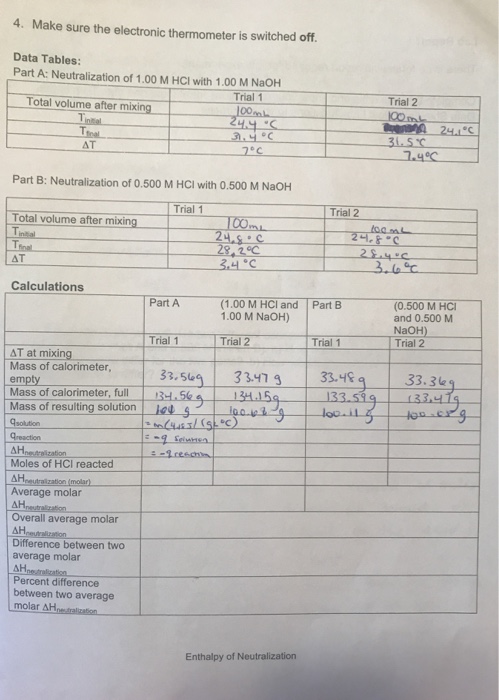 4. Make sure the electronic thermometer is switched off.
Data Tables:
Part A: Neutralization of 1.00 M HCl with 1.00 M NaOH
Trial 1 Trial 2
Total volume after mixing 100mL 100mL
Tinitial 24.4 °C 24.1°C
Tfinal 31.4 °C 31.5°C
ΔT 7°C 7.4°C
Part B: Neutralization of 0.500 M HCl with 0.500 M NaOH
Trial 1 Trial 2
Total volume after mixing 100mL 100mL
Tinitial 24.8°C 24.8°C
Tfinal 28.2°C 28.4°C
ΔT 3.4°C 3.6°C
Calculations
Part A (1.00 M HCl and Part B (0.500 M HCl
1.00 M NaOH) and 0.500 M
NaOH)
Trial 1 Trial 2 Trial 1 Trial 2
ΔT at mixing
Mass of calorimeter,
empty 33.56g 33.47g 33.48g 33.36g
Mass of calorimeter, full 134.56g 134.15g 133.59g 133.47g
Mass of resulting solution 101 g 100.68g 100.11g
qsolution = m(4.185/(g°C)
qreaction = -q solution
ΔHneutralization = -q reaction
Moles of HCl reacted
ΔHneutralization (molar)
Average molar
ΔHneutralization
Overall average molar
ΔHneutralization
Difference between two
average molar
ΔHneutralization
Percent difference
between two average
molar ΔHneutralization
Enthalpy of Neutralization